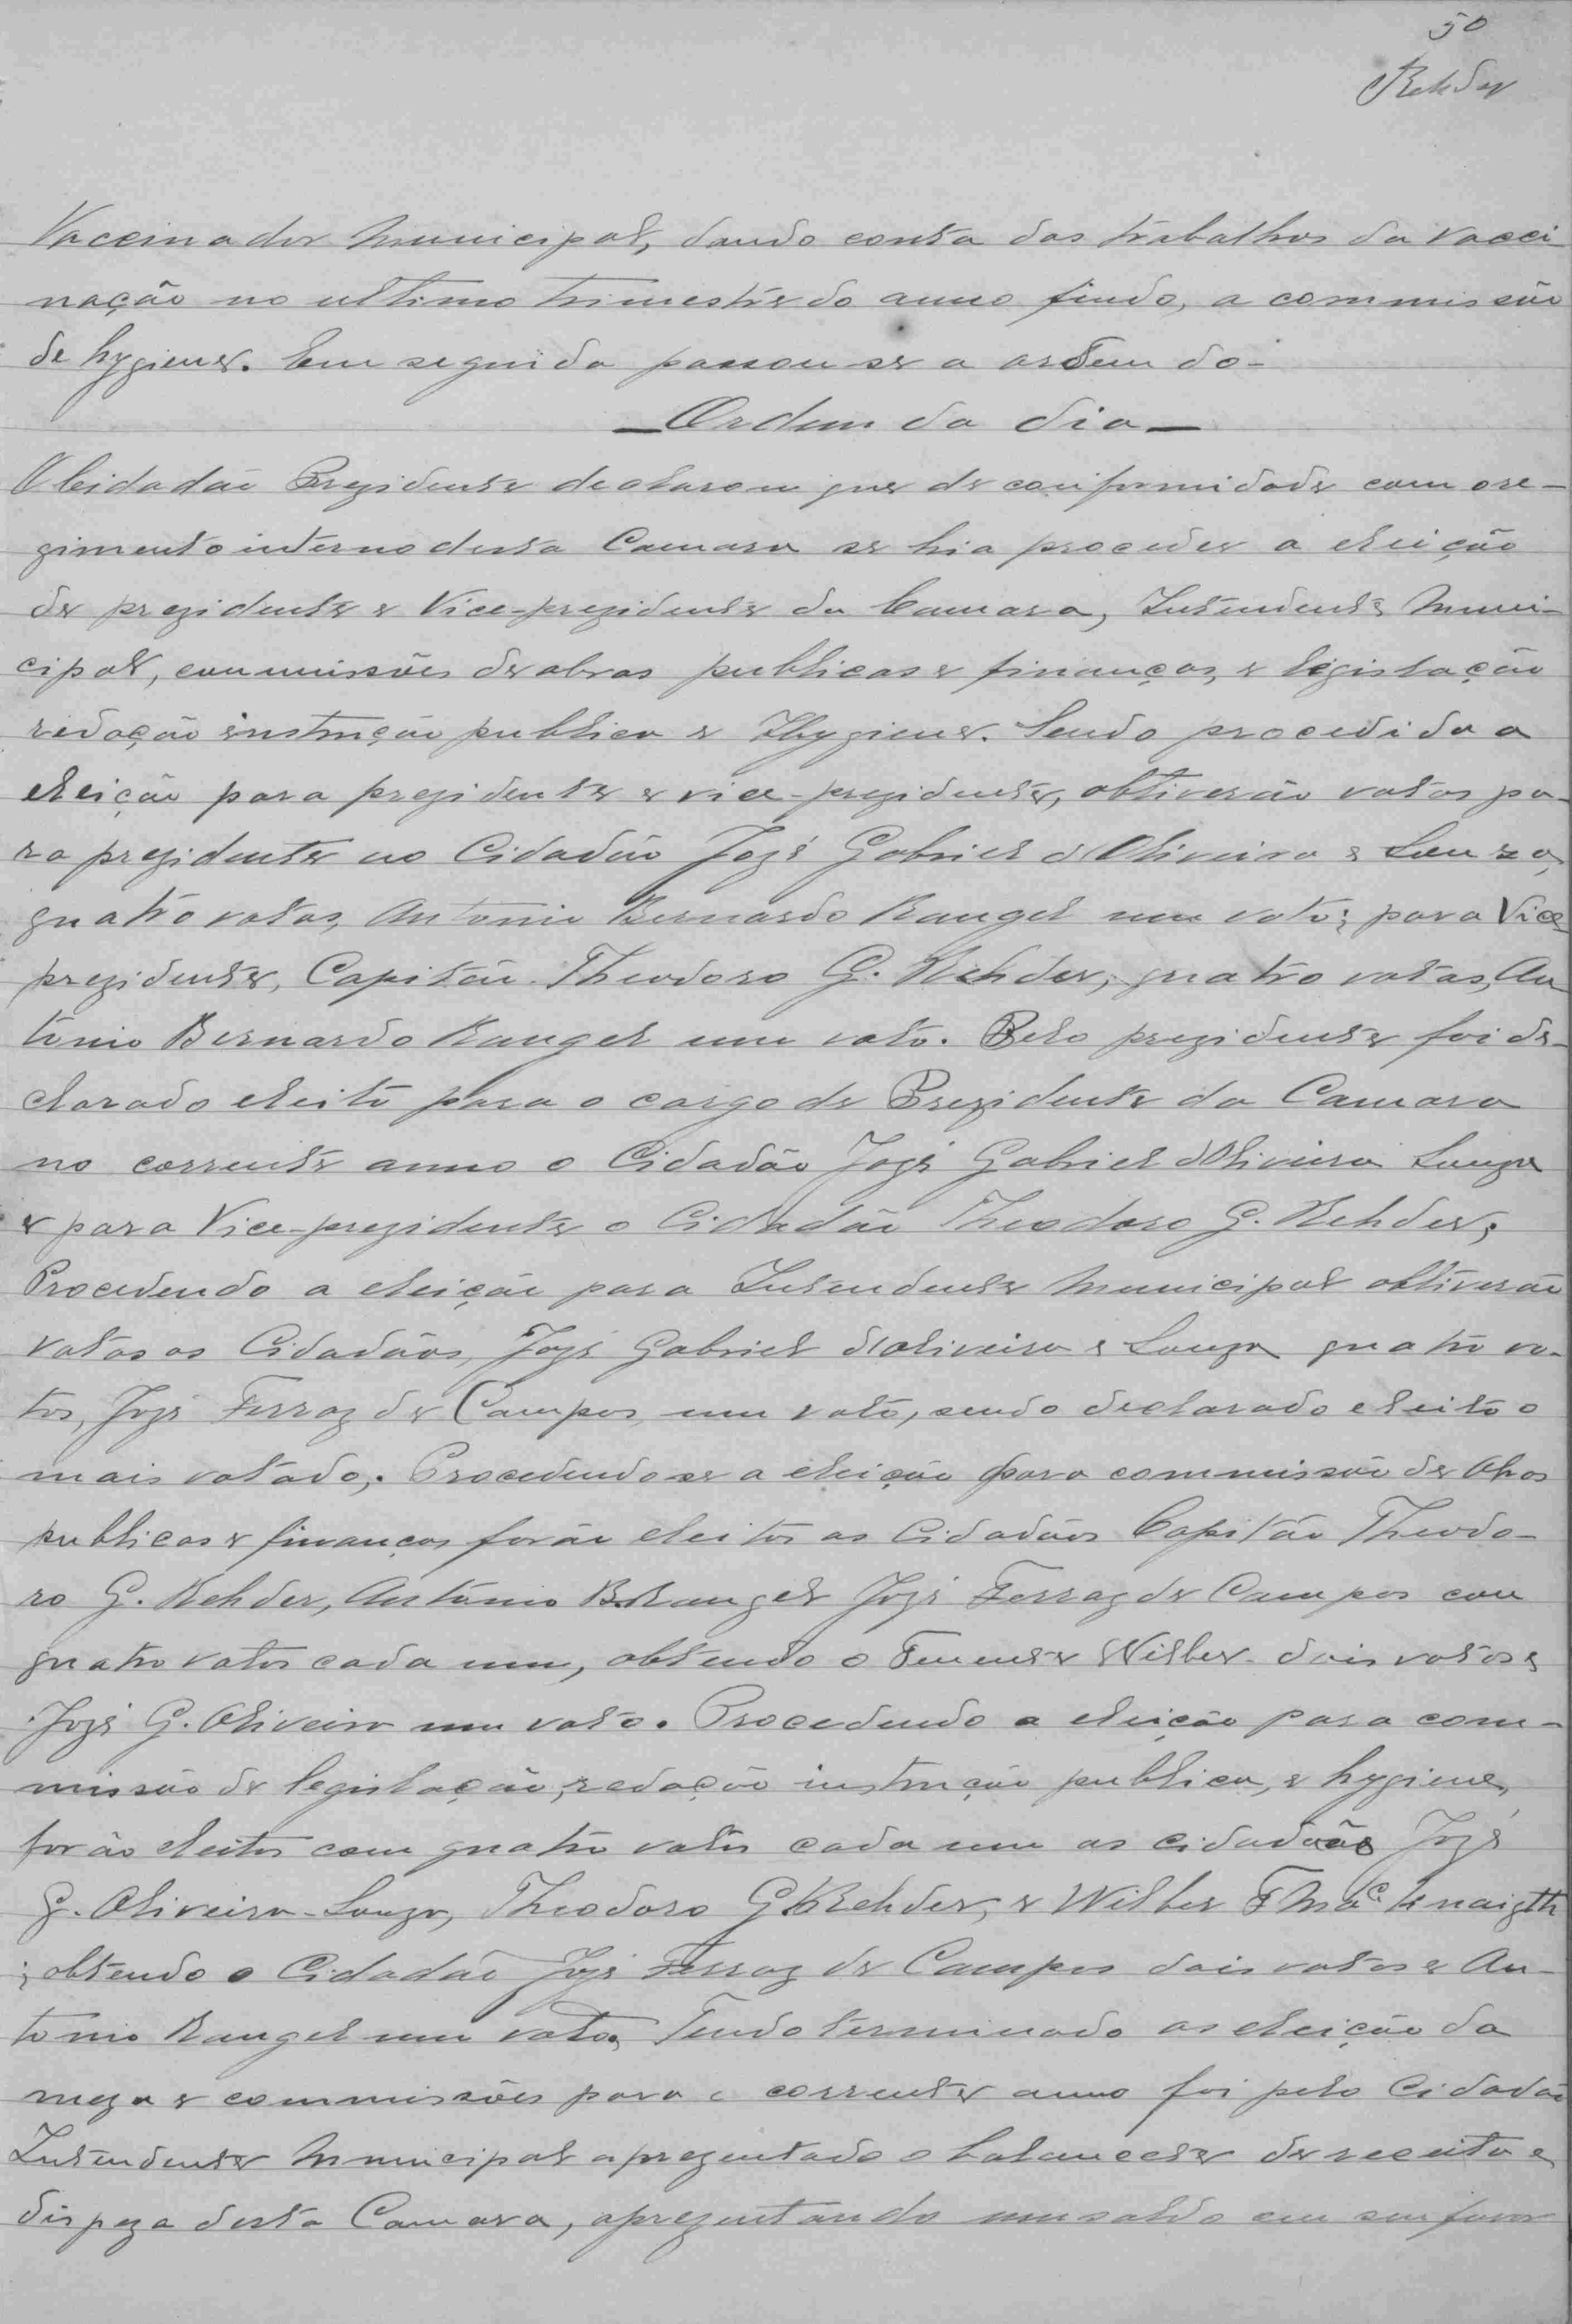 50
Rehder
Vaccinador Municipal, dando conta dos trabalhos da vacci-
nação no ultimo trimestre do anno findo, a commissão
de hygiene. Em seguida passou-se a ordem do-
—Ordem do dia—
O Cidadão Prezidente declarou que de conformidade com o re-
gimento interno desta Camara se hia proceder a eleição
de prezidente e Vice-prezidente da Camara, Intendente Muni-
cipal, commissões de obras publicas e finanças, e legislação
redação instrução publica e Hygiene. Sendo procedida a
eleição para prezidente e vice-prezidente, obtiverão votos pa-
ra prezidente no Cidadão Jozé Gabriel d'Oliveira e Souza,
quatro votos, Antonio Bernardo Rangel um voto; para Vice
prezidente, Capitão Theodoro G. Rehder, quatro votos, An
tonio Bernardo Rangel um voto. Pelo prezidente foi de-
clarado eleito para o cargo de Prezidente da Camara
no corrente anno o Cidadão Jozé Gabriel d'Oliveira Souza
e para Vice-prezidente o Cidadão Theodoro G. Rehder;
Procedendo a eleição para Intendente Municipal obtiverão
votos os Cidadãos, Jozé Gabriel d'Oliveira e Souza quatro vo-
tos, Jozé Ferraz de Campos um voto, sendo declarado eleito o
mais votado,. Procedendo se a eleição para commissão de Obras
publicas e finanças forão eleitos os Cidadãos Capitão Theodo-
ro G. Rehder, Antonio B. Rangel Jozé Ferraz de Campos com
quatro votos cada um, obtendo o Tenente Wilber dois votos e
Jozé G. Oliveira um voto. Procedendo a eleição para com-
missão de legislação, redação instrução publica, e hygiene,
forão eleitos com quatro votos cada um os cidadãos Jozé
G. Oliveira Souza, Theodoro G Rehder, e Wilber F Mac. Knaigth
; obtendo o Cidadão Jozé Ferraz de Campos dois votos e An-
tonio Rangel um voto. Tendo terminado as eleição da
meza e commissões para o corrente anno foi pelo Cidadão
Intendente Municipal aprezentado o balancete de receita e
dispeza desta Camara, aprezentando um saldo em seu favor